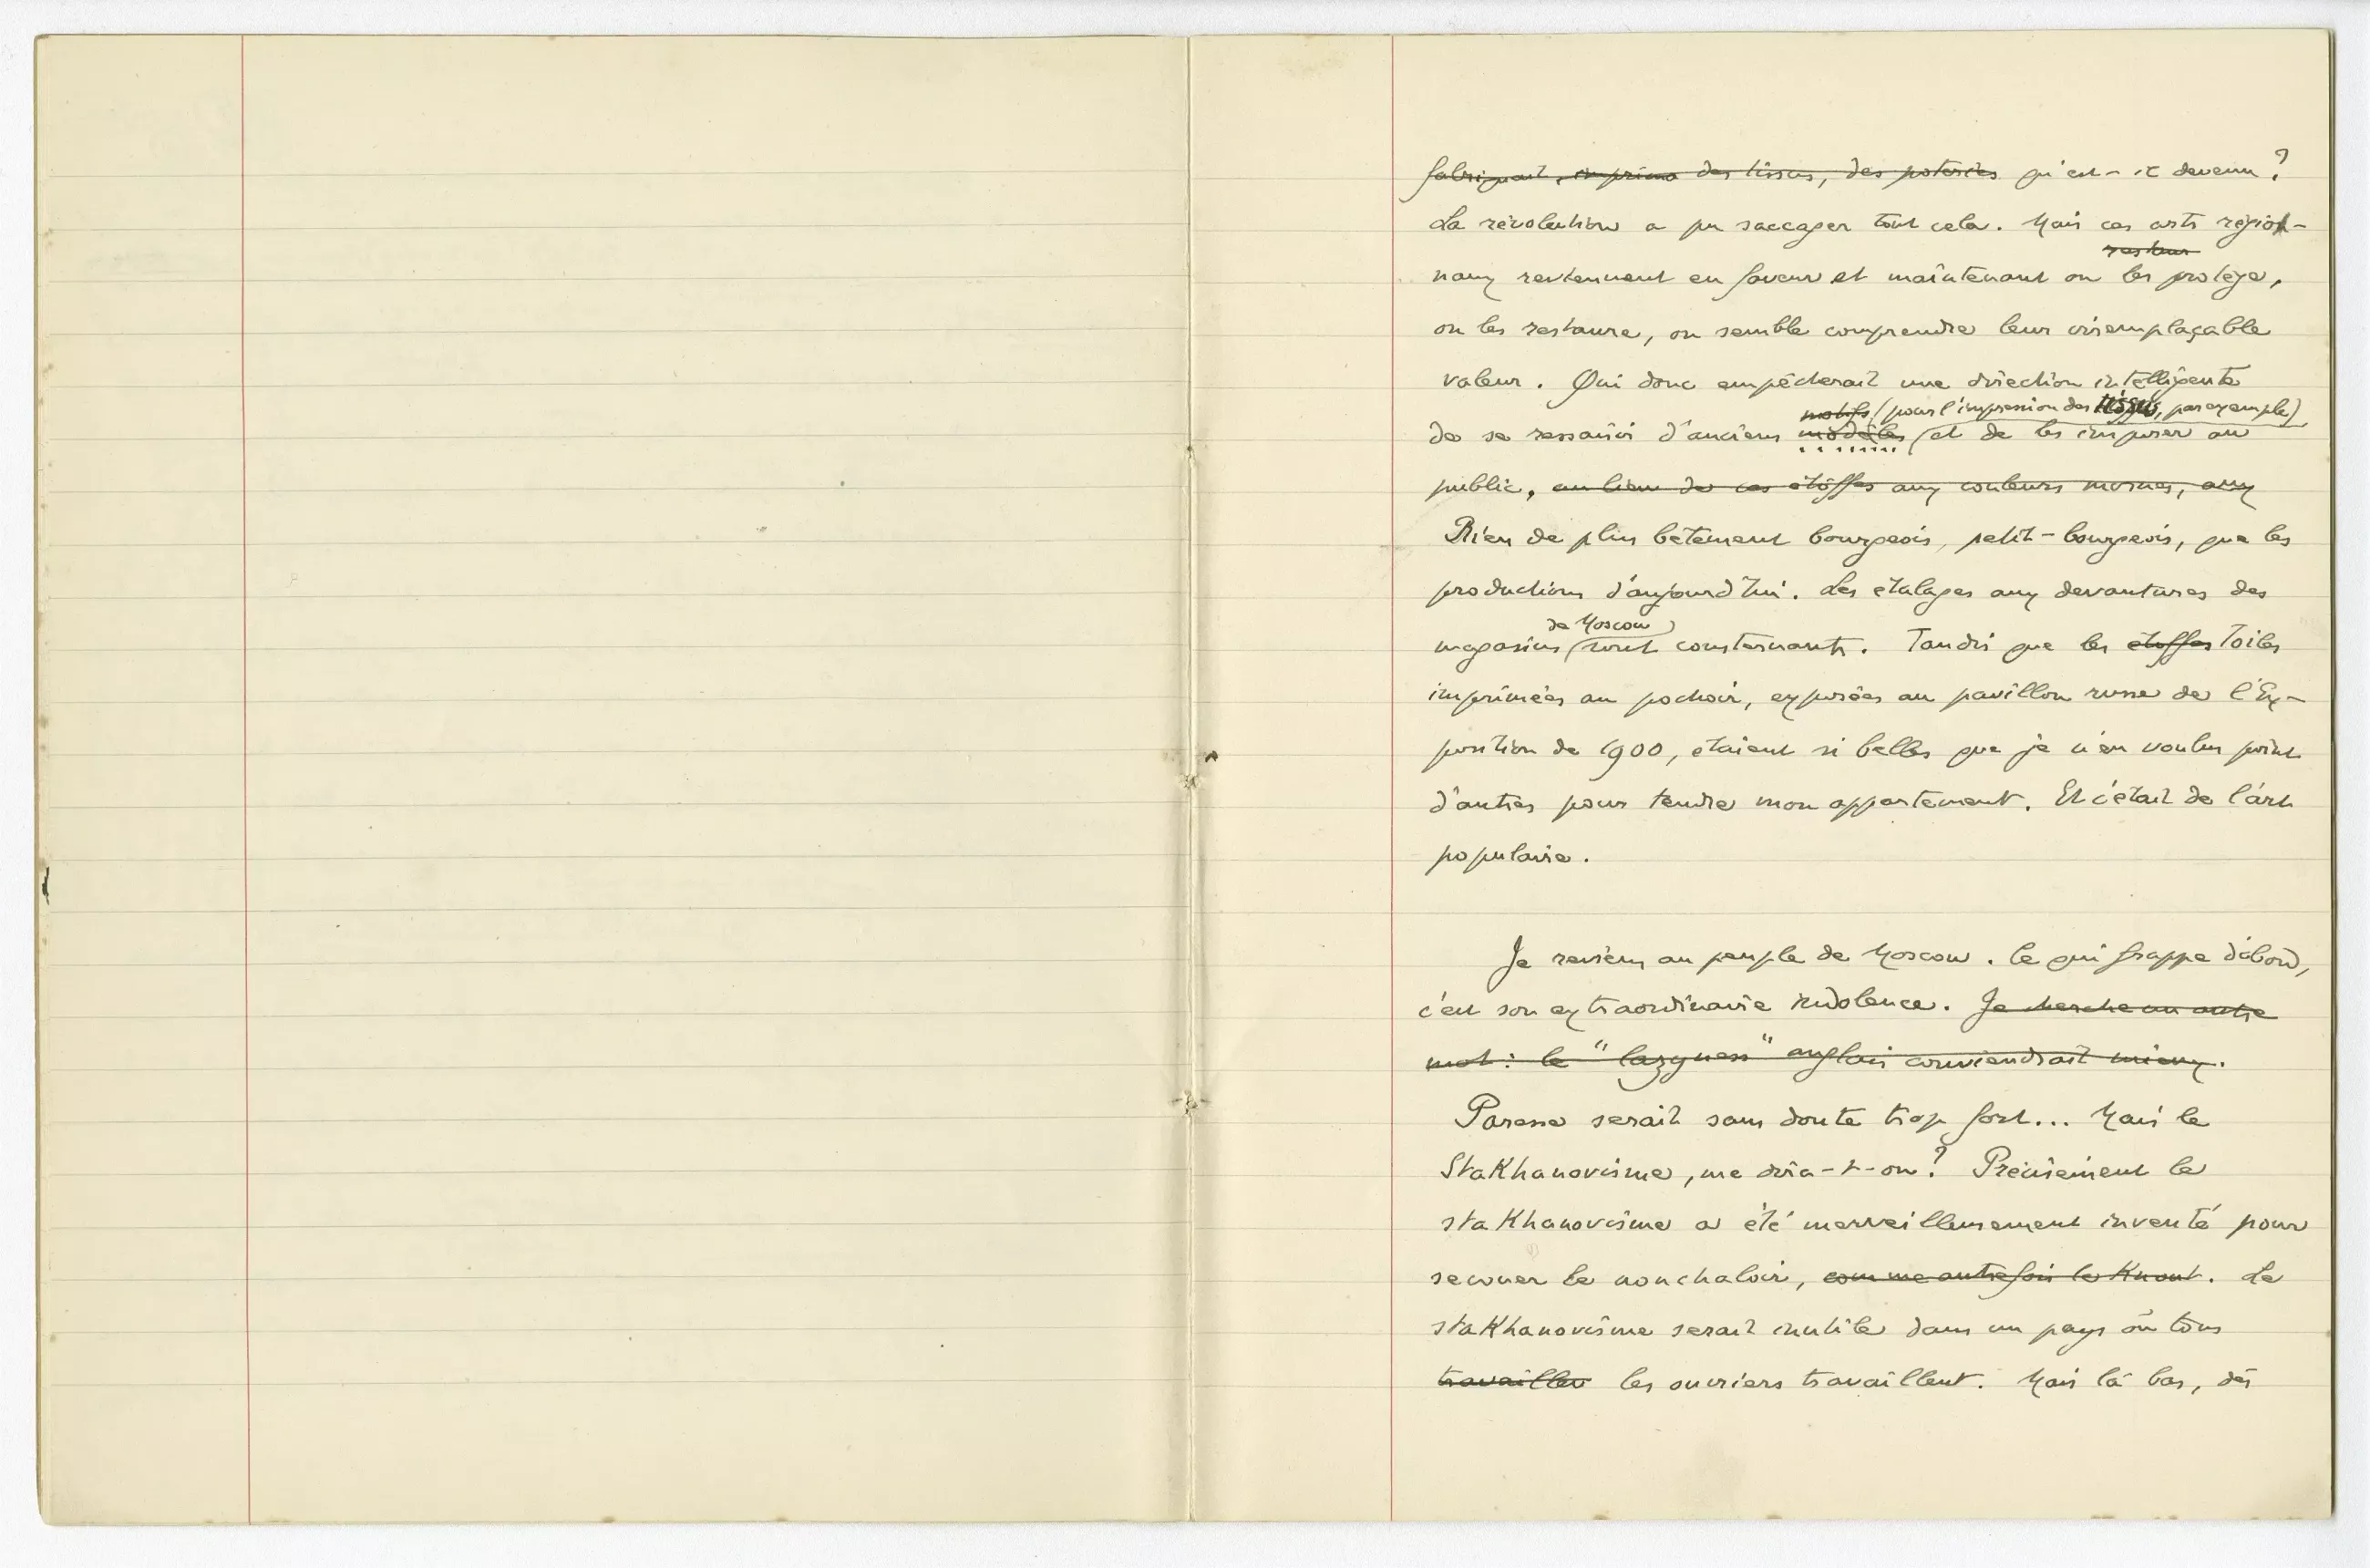 fabriquait, imprima des tissus, des poteries qu'est-il devenu?
La révolution a pu saccager tout cela. Mais ces arts région-
restaur
naux reviennent en faveur et maintenant on les protège,
on les restaure, on semble comprendre leur irremplaçable
valeur. Qui donc empêcherait une direction intelligente
motifs (pour l'impression des tissus, par exemple)
de se ressaisir d'anciens modèles et de les imposer au
public, au lieu de ces étoffes aux couleurs mornes, aux
Rien de plus bêtement bourgeois, petit-bourgeois, que les
productions d'aujourd'hui. Les étalages aux devantures des
de Moscou
magasins sont consternants. Tandis que les étoffes toiles
imprimées au pochoir, exposées au pavillon russe de l'Ex-
position de 1900, étaient si belles que je n'en voulus point
d'autres pour tendre mon appartement. Et c'était de l'art
populaire.
Je reviens au peuple de Moscou. Ce qui frappe d'abord,
c'est son extraordinaire indolence. Je cherche un autre
mot: le "lazyness" anglais conviendrait mieux.
Paresse serait sans doute trop fort... Mais le
Stakhanovisme, me dira-t-on? Précisément le
stakhanovisme a été merveilleusement inventé pour
secouer le nonchaloir, comme autrefois le knout. Le
stakhanovisme serait inutile dans un pays où tous
travaillen les ouvriers travaillent. Mais là bas, dès